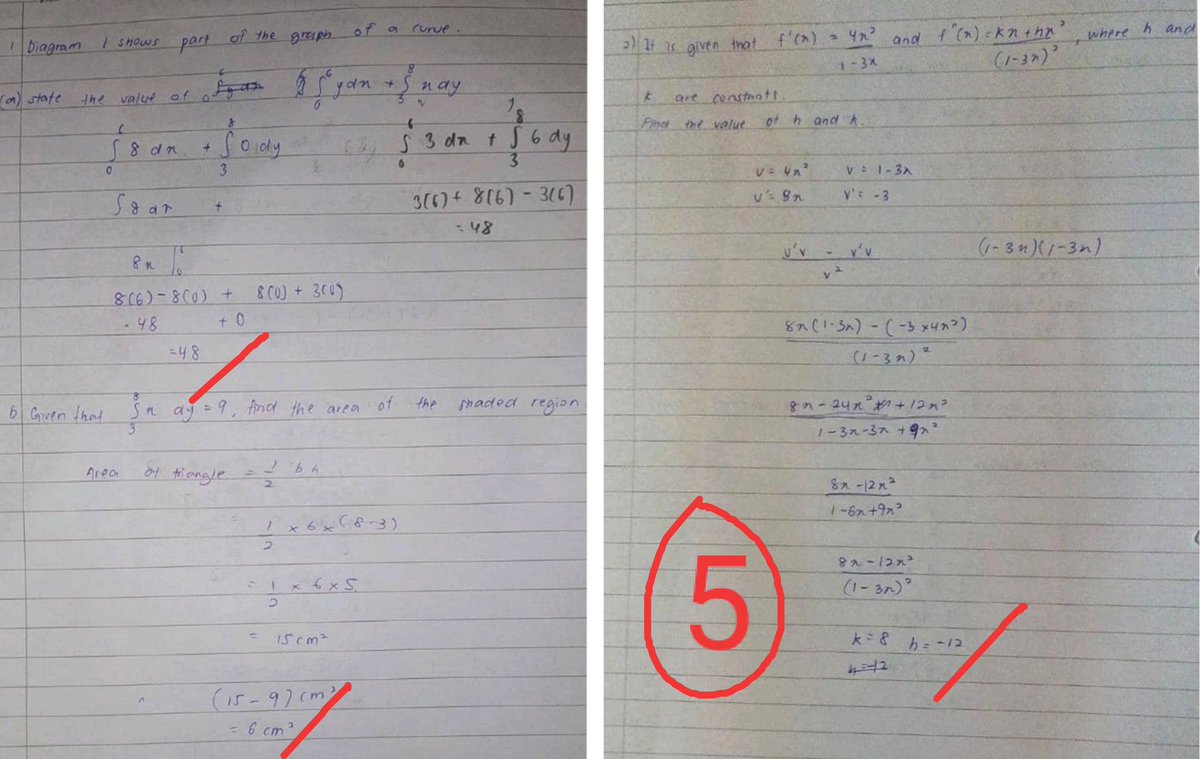 1 Diagram 1 shows part of the graph of a curve.
(a) state the value of ∫₀⁶ y dx + ∫₃⁸ x dy
∫₀⁶ 8 dx + ∫₃⁸ 0 dy
∫₀⁶ 3 dx + ∫₃⁸ 6 dy
∫ 8 dx +
3(6) + 8(6) - 3(6)
= 48
8x |₀⁶
8(6) - 8(0) + 8(0) + 3(0)
= 48 + 0
= 48
b Given that ∫₃⁸ x dy = 9, find the area of the shaded region
Area of triangle = 1/2 b h
1/2 × 6 × (8-3)
= 1/2 × 6 × 5
= 15 cm²
(15 - 9) cm²
= 6 cm²
2) It is given that f'(x) = 4x²/1-3x and f"(x) = kx + hx²/(1-3x)², where h and
k are constants.
Find the value of h and k.
u = 4x² v = 1-3x
u' = 8x v' = -3
u'v - v'u / v²
(1-3x)(1-3x)
8x(1-3x) - (-3 × 4x²) / (1-3x)²
8x - 24x² + 12x² / 1-3x-3x+9x²
8x - 12x² / 1-6x+9x²
8x - 12x² / (1-3x)²
k = 8 h = -12
5